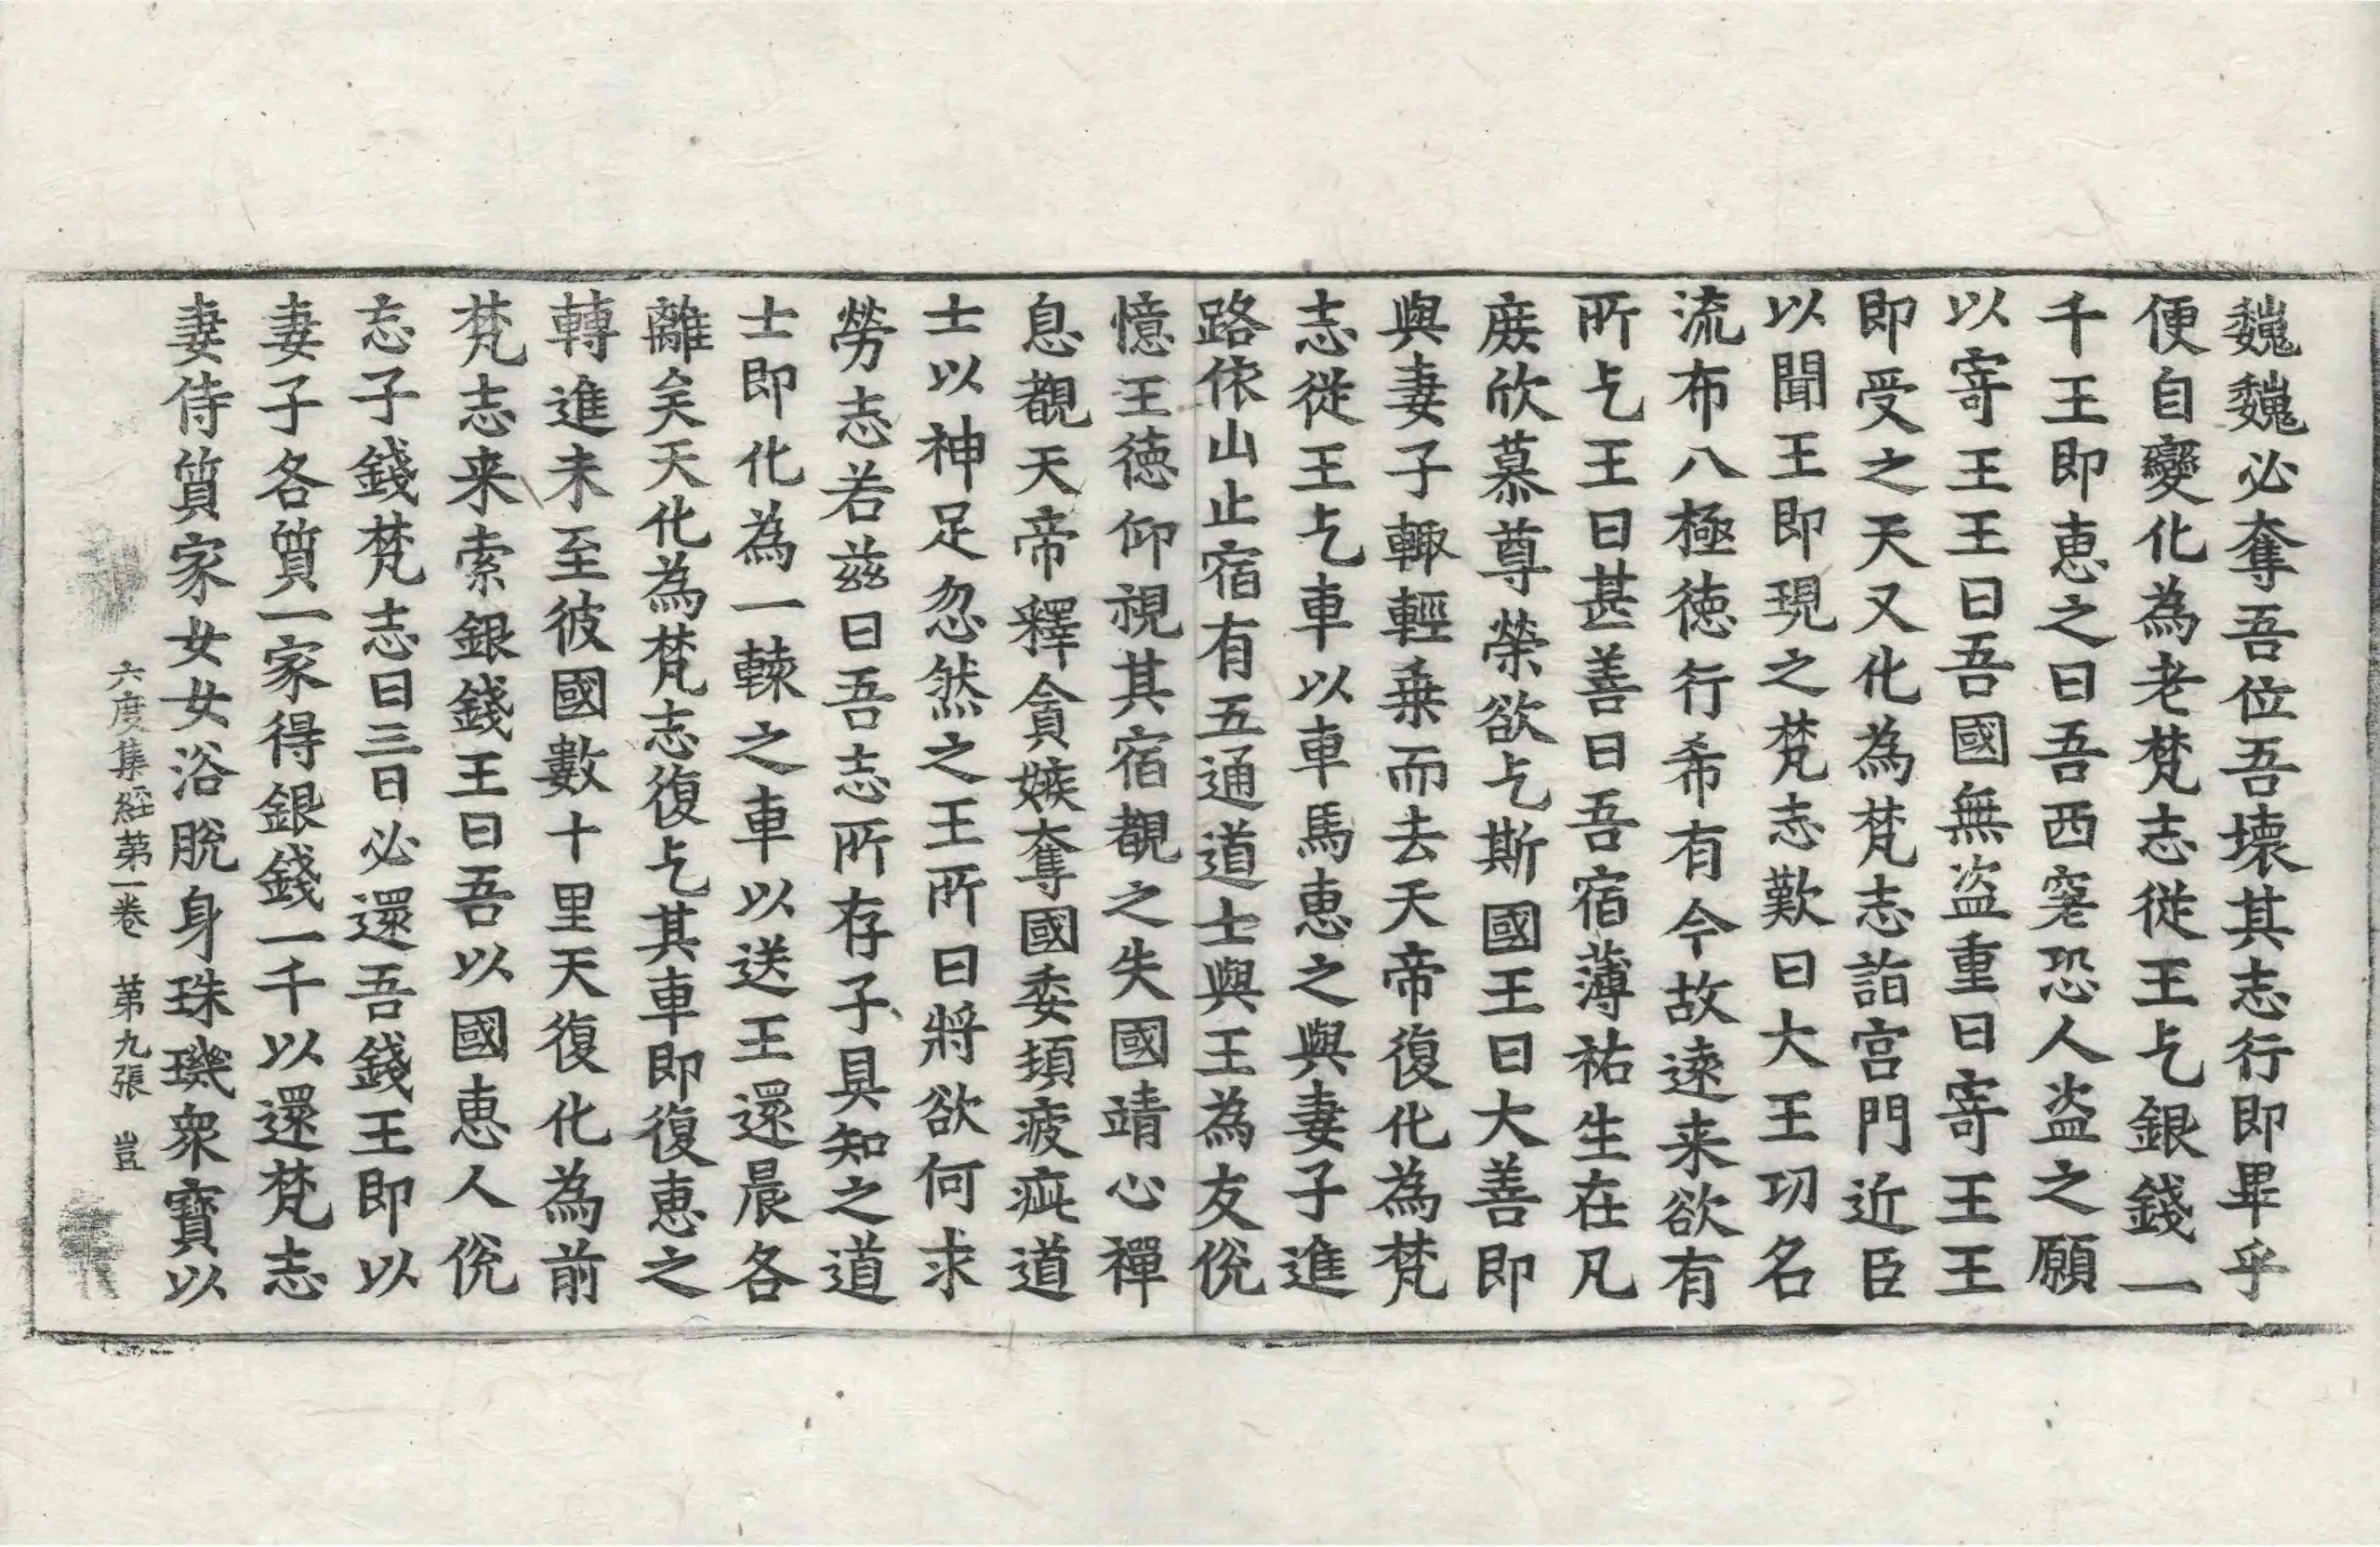 巍巍必奪吾位吾壞其志行即畢乎
便自變化為老梵志從王乞銀錢一
千王即惠之曰吾西耄恐人盜之願
以寄王王曰吾國無盜重曰寄王王
即受之天又化為梵志詣宮門近臣
以聞王即現之梵志歎曰大王功名
流布八極德行希有今故遠来欲有
所乞王曰甚善曰吾宿薄祐生在凡
庶欣慕尊榮欲乞斯國王曰大善即
與妻子輙輕乗而去天帝復化為梵
志從王乞車以車馬惠之與妻子進
路依山止宿有五通道士與王為友侻
憶王德仰視其宿覩之失國靖心禪
息覩天帝釋貪嫉奪國委頓疲疵道
士以神足忽然之王所曰將欲何求
勞志若兹曰吾志所存子具知之道
士即化為一轅之車以送王還晨各
離矣天化為梵志復乞其車即復惠之
轉進未至彼國數十里天復化為前
梵志来索銀錢王曰吾以國惠人侻
忘子錢梵志曰三日必還吾錢王即以
妻子各質一家得銀錢一千以還梵志
妻侍質家女女浴脫身珠璣衆寶以
六度集經第一卷　第九張　豈